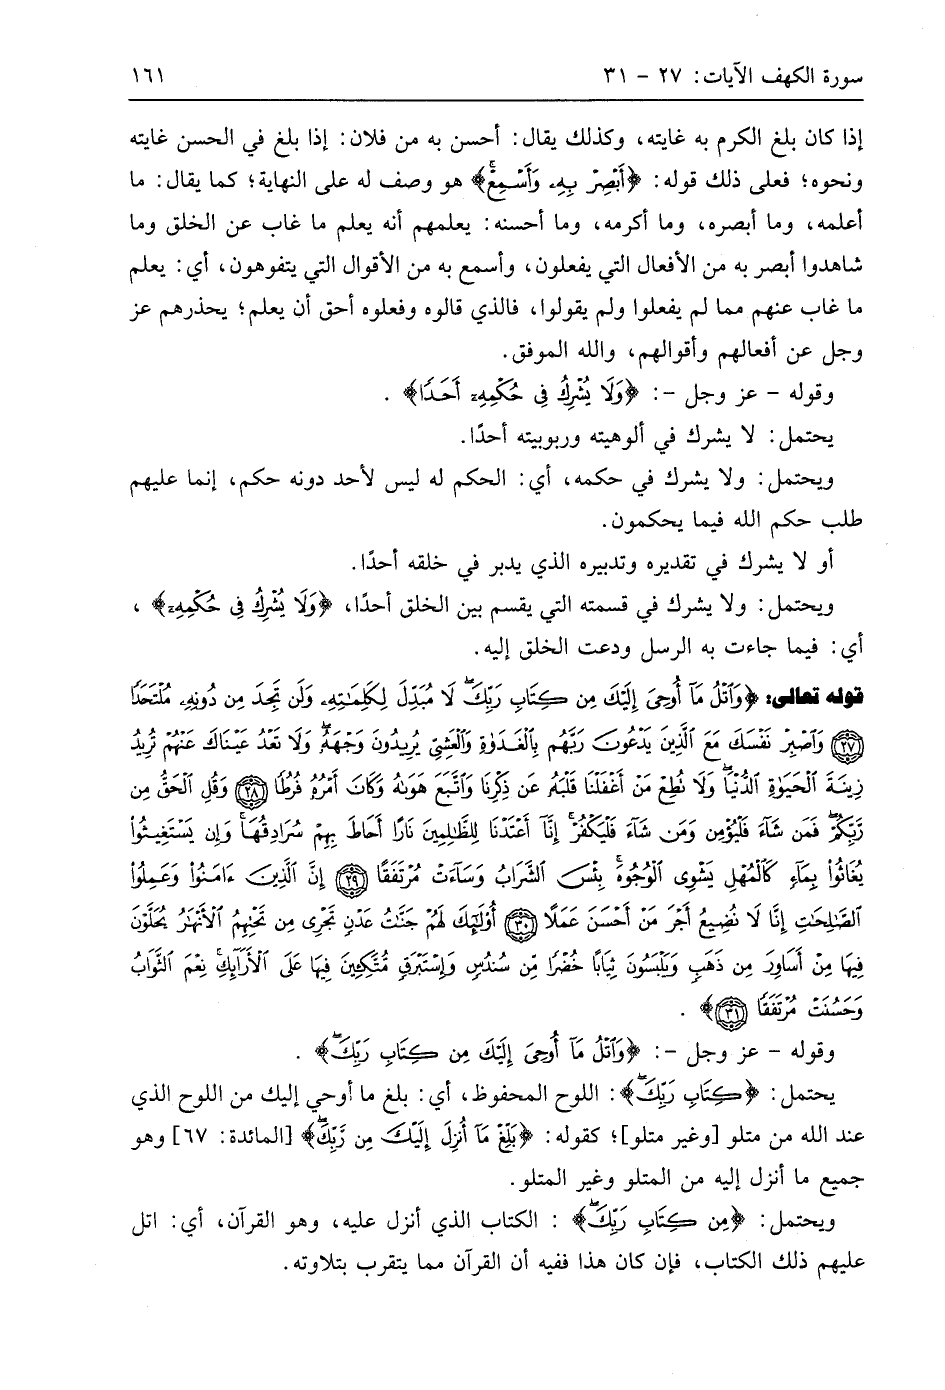 سورة الكهف الآيات: ٢٧ - ٣١ ١٦١
إذا كان بلغ الكرم به غايته، وكذلك يقال: أحسن به من فلان: إذا بلغ في الحسن غايته
ونحوه؛ فعلى ذلك قوله: ﴿أَبْصِرْ بِهِۦ وَأَسْمِعْۚ﴾ هو وصف له على النهاية؛ كما يقال: ما
أعلمه، وما أبصره، وما أكرمه، وما أحسنه: يعلمهم أنه يعلم ما غاب عن الخلق وما
شاهدوا أبصر به من الأفعال التي يفعلون، وأسمع به من الأقوال التي يتفوهون، أي: يعلم
ما غاب عنهم مما لم يفعلوا ولم يقولوا، فالذي قالوه وفعلوه أحق أن يعلم؛ يحذرهم عز
وجل عن أفعالهم وأقوالهم، والله الموفق.
وقوله - عز وجل -: ﴿وَلَا يُشْرِكُ فِى حُكْمِهِۦٓ أَحَدًا﴾ .
يحتمل: لا يشرك في ألوهيته وربوبيته أحدًا.
ويحتمل: ولا يشرك في حكمه، أي: الحكم له ليس لأحد دونه حكم، إنما عليهم
طلب حكم الله فيما يحكمون.
أو لا يشرك في تقديره وتدبيره الذي يدبر في خلقه أحدًا.
ويحتمل: ولا يشرك في قسمته التي يقسم بين الخلق أحدًا، ﴿وَلَا يُشْرِكُ فِى حُكْمِهِۦٓ﴾ ،
أي: فيما جاءت به الرسل ودعت الخلق إليه.
قوله تعالى: ﴿وَٱتْلُ مَآ أُوحِىَ إِلَيْكَ مِن كِتَابِ رَبِّكَۖ لَا مُبَدِّلَ لِكَلِمَٰتِهِۦ وَلَن تَجِدَ مِن دُونِهِۦ مُلْتَحَدًا
(٢٧) وَٱصْبِرْ نَفْسَكَ مَعَ ٱلَّذِينَ يَدْعُونَ رَبَّهُم بِٱلْغَدَوٰةِ وَٱلْعَشِىِّ يُرِيدُونَ وَجْهَهُۥۖ وَلَا تَعْدُ عَيْنَاكَ عَنْهُمْ تُرِيدُ
زِينَةَ ٱلْحَيَوٰةِ ٱلدُّنْيَاۖ وَلَا تُطِعْ مَنْ أَغْفَلْنَا قَلْبَهُۥ عَن ذِكْرِنَا وَٱتَّبَعَ هَوَىٰهُ وَكَانَ أَمْرُهُۥ فُرُطًا (٢٨) وَقُلِ ٱلْحَقُّ مِن
رَّبِّكُمْۖ فَمَن شَآءَ فَلْيُؤْمِن وَمَن شَآءَ فَلْيَكْفُرْۚ إِنَّآ أَعْتَدْنَا لِلظَّٰلِمِينَ نَارًا أَحَاطَ بِهِمْ سُرَادِقُهَاۚ وَإِن يَسْتَغِيثُوا۟
يُغَاثُوا۟ بِمَآءٍ كَٱلْمُهْلِ يَشْوِى ٱلْوُجُوهَۚ بِئْسَ ٱلشَّرَابُ وَسَآءَتْ مُرْتَفَقًا (٢٩) إِنَّ ٱلَّذِينَ ءَامَنُوا۟ وَعَمِلُوا۟
ٱلصَّٰلِحَٰتِ إِنَّا لَا نُضِيعُ أَجْرَ مَنْ أَحْسَنَ عَمَلًا (٣٠) أُو۟لَٰٓئِكَ لَهُمْ جَنَّٰتُ عَدْنٍ تَجْرِى مِن تَحْتِهِمُ ٱلْأَنْهَٰرُ يُحَلَّوْنَ
فِيهَا مِنْ أَسَاوِرَ مِن ذَهَبٍ وَيَلْبَسُونَ ثِيَابًا خُضْرًا مِّن سُندُسٍ وَإِسْتَبْرَقٍ مُّتَّكِـِٔينَ فِيهَا عَلَى ٱلْأَرَآئِكِۚ نِعْمَ ٱلثَّوَابُ
وَحَسُنَتْ مُرْتَفَقًا (٣١)﴾ .
وقوله - عز وجل -: ﴿وَٱتْلُ مَآ أُوحِىَ إِلَيْكَ مِن كِتَابِ رَبِّكَۖ﴾ .
يحتمل: ﴿كِتَابِ رَبِّكَۖ﴾: اللوح المحفوظ، أي: بلغ ما أوحي إليك من اللوح الذي
عند الله من متلو [وغير متلو]؛ كقوله: ﴿بَلِّغْ مَآ أُنزِلَ إِلَيْكَ مِن رَّبِّكَۖ﴾ [المائدة: ٦٧] وهو
جميع ما أنزل إليه من المتلو وغير المتلو.
ويحتمل: ﴿مِن كِتَابِ رَبِّكَۖ﴾ : الكتاب الذي أنزل عليه، وهو القرآن، أي: اتل
عليهم ذلك الكتاب، فإن كان هذا ففيه أن القرآن مما يتقرب بتلاوته.